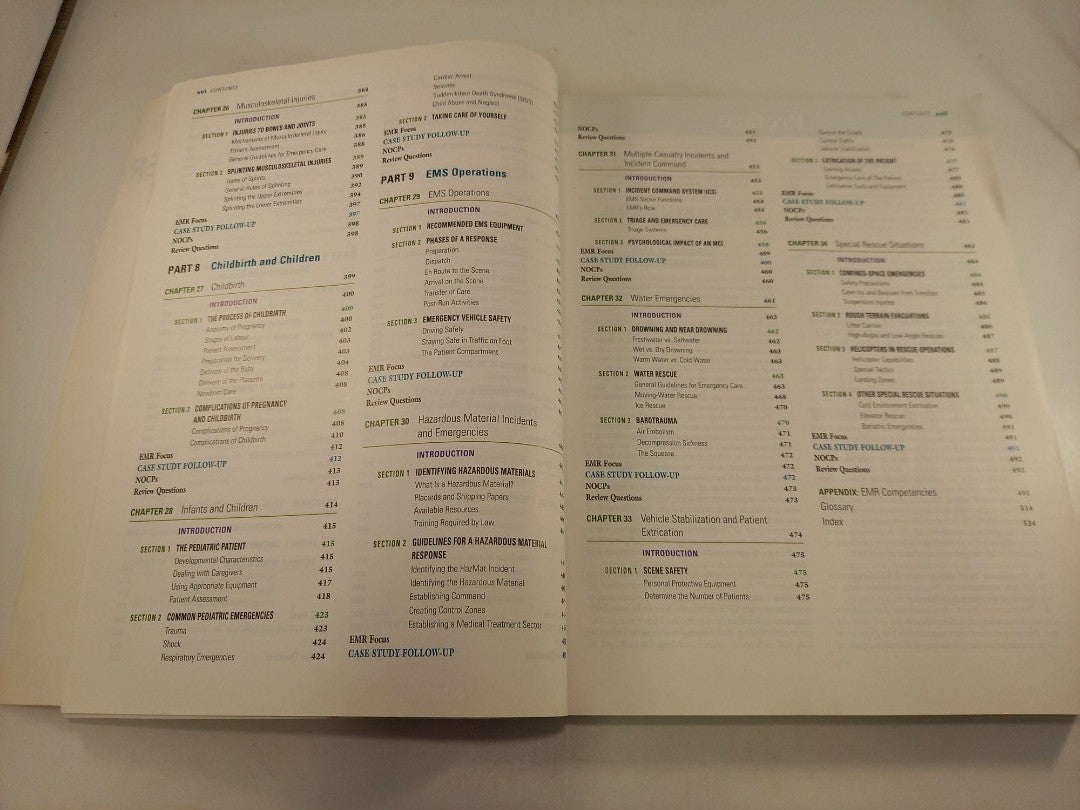 xvi CONTENTS
CHAPTER 26 Musculoskeletal Injuries 384
INTRODUCTION 385
SECTION 1 INJURIES TO BONES AND JOINTS 385
Mechanisms of Musculoskeletal Injury 385
Patient Assessment 386
General Guidelines for Emergency Care 388
SECTION 2 SPLINTING MUSCULOSKELETAL INJURIES 389
Types of Splints 389
General Rules of Splinting 390
Splinting the Upper Extremities 392
Splinting the Lower Extremities 394
EMR Focus 397
CASE STUDY FOLLOW-UP 397
NOCPs 398
Review Questions 398
PART 8 Childbirth and Children
CHAPTER 27 Childbirth 399
INTRODUCTION 400
SECTION 1 THE PROCESS OF CHILDBIRTH 400
Anatomy of Pregnancy 400
Stages of Labour 402
Patient Assessment 403
Preparation for Delivery 403
Delivery of the Baby 404
Delivery of the Placenta 408
Newborn Care 408
SECTION 2 COMPLICATIONS OF PREGNANCY
AND CHILDBIRTH 408
Complications of Pregnancy 408
Complications of Childbirth 410
EMR Focus 412
CASE STUDY FOLLOW-UP 412
NOCPs 413
Review Questions 413
CHAPTER 28 Infants and Children 414
INTRODUCTION 415
SECTION 1 THE PEDIATRIC PATIENT 415
Developmental Characteristics 415
Dealing with Caregivers 415
Using Appropriate Equipment 417
Patient Assessment 418
SECTION 2 COMMON PEDIATRIC EMERGENCIES 423
Trauma 423
Shock 424
Respiratory Emergencies 424
Cardiac Arrest
Seizures
Sudden Infant Death Syndrome (SIDS)
Child Abuse and Neglect
SECTION 3 TAKING CARE OF YOURSELF
EMR Focus
CASE STUDY FOLLOW-UP
NOCPs
Review Questions
PART 9 EMS Operations
CHAPTER 29 EMS Operations
INTRODUCTION
SECTION 1 RECOMMENDED EMS EQUIPMENT
SECTION 2 PHASES OF A RESPONSE
Preparation
Dispatch
En Route to the Scene
Arrival on the Scene
Transfer of Care
Post-Run Activities
SECTION 3 EMERGENCY VEHICLE SAFETY
Driving Safely
Staying Safe in Traffic on Foot
The Patient Compartment
EMR Focus
CASE STUDY FOLLOW-UP
NOCPs
Review Questions
CHAPTER 30 Hazardous Material Incidents
and Emergencies
INTRODUCTION
SECTION 1 IDENTIFYING HAZARDOUS MATERIALS
What Is a Hazardous Material?
Placards and Shipping Papers
Available Resources
Training Required by Law
SECTION 2 GUIDELINES FOR A HAZARDOUS MATERIAL
RESPONSE
Identifying the HazMat Incident
Identifying the Hazardous Material
Establishing Command
Creating Control Zones
Establishing a Medical Treatment Sector
EMR Focus
CASE STUDY FOLLOW-UP
CONTENTS xvii
NOCPs 451
Review Questions 451
CHAPTER 31 Multiple-Casualty Incidents and
Incident Command 452
INTRODUCTION 453
SECTION 1 INCIDENT COMMAND SYSTEM (ICS) 453
EMS Sector Functions 453
EMR's Role 456
SECTION 2 TRIAGE AND EMERGENCY CARE 456
Triage Systems 456
SECTION 3 PSYCHOLOGICAL IMPACT OF AN MCI 458
EMR Focus 459
CASE STUDY FOLLOW-UP 460
NOCPs 460
Review Questions 460
CHAPTER 32 Water Emergencies 461
INTRODUCTION 462
SECTION 1 DROWNING AND NEAR DROWNING 462
Freshwater vs. Saltwater 463
Wet vs. Dry Drowning 463
Warm Water vs. Cold Water 463
SECTION 2 WATER RESCUE 463
General Guidelines for Emergency Care 463
Moving-Water Rescue 468
Ice Rescue 470
SECTION 3 BAROTRAUMA 470
Air Embolism 471
Decompression Sickness 471
The Squeeze 472
EMR Focus 472
CASE STUDY FOLLOW-UP 472
NOCPs 473
Review Questions 473
CHAPTER 33 Vehicle Stabilization and Patient
Extrication 474
INTRODUCTION 475
SECTION 1 SCENE SAFETY 475
Personal Protective Equipment 475
Determine the Number of Patients 475
Control the Scene
Control Traffic
Vehicle Stabilization
SECTION 2 EXTRICATION OF THE PATIENT 477
Gaining Access 477
Emergency Care of the Patient 480
Extrication Tools and Equipment 480
EMR Focus 480
CASE STUDY FOLLOW-UP 481
NOCPs 481
Review Questions 481
CHAPTER 34 Special Rescue Situations 483
INTRODUCTION 484
SECTION 1 CONFINED-SPACE EMERGENCIES 484
Safety Precautions 484
Cave-Ins and Rescues from Trenches 485
Suspension Injuries 486
SECTION 2 ROUGH TERRAIN EVACUATIONS 486
Litter Carries 486
High-Angle and Low-Angle Rescues 487
SECTION 3 HELICOPTERS IN RESCUE OPERATIONS 487
Helicopter Capabilities 488
Special Tactics 489
Landing Zones 489
SECTION 4 OTHER SPECIAL RESCUE SITUATIONS 490
Cold Environment Extrication 490
Elevator Rescue 490
Bariatric Emergencies 491
EMR Focus 491
CASE STUDY FOLLOW-UP 491
NOCPs 492
Review Questions 492
APPENDIX: EMR Competencies 493
Glossary 514
Index 524